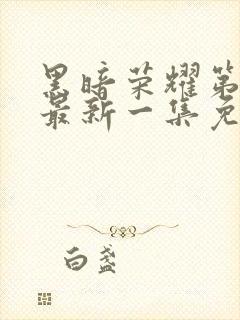 黑暗荣耀第
最新一集免
白盏